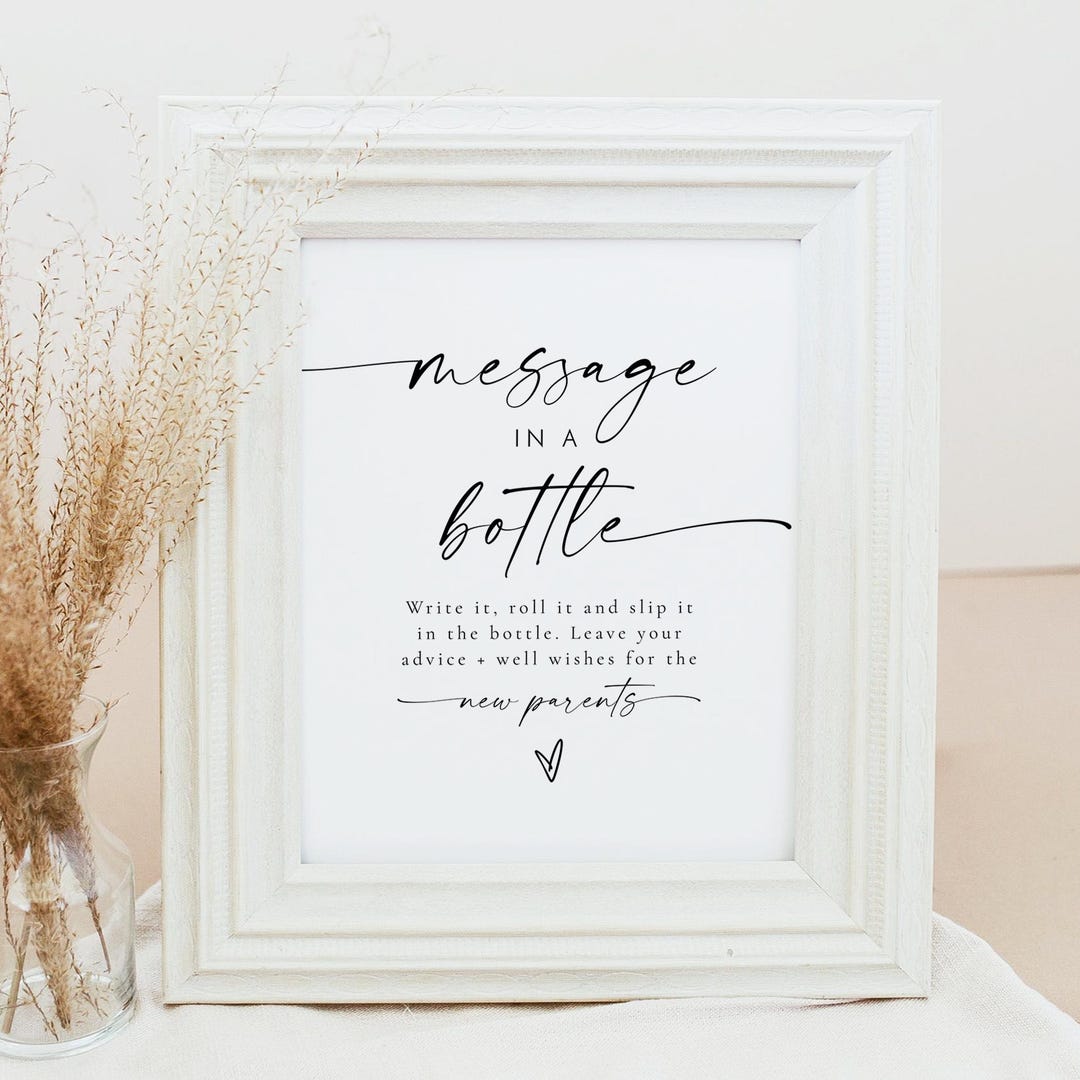 message
IN A
bottle
Write it, roll it and slip it
in the bottle. Leave your
advice + well wishes for the
new parents